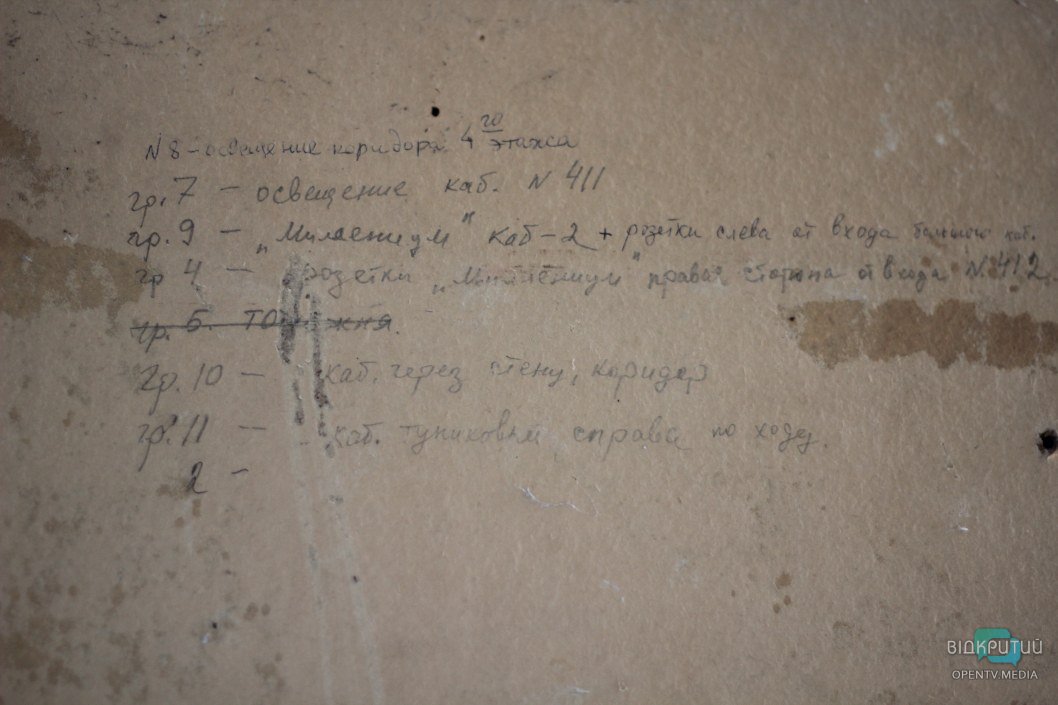 N 8 - освещение коридора 4го этажа
гр. 7 - освещение каб. N 411
гр. 9 - „Милениум" каб - 2 + розетки слева от входа большого каб.
гр 4 - розетки „Милениум" правая сторона от входа N 412
гр. 5.
гр. 10 - каб. через стену, коридор
гр. 11 - каб. тупиковый справа по ходу.
2 -
ВІДКРИТИЙ
OPENTV.MEDIA